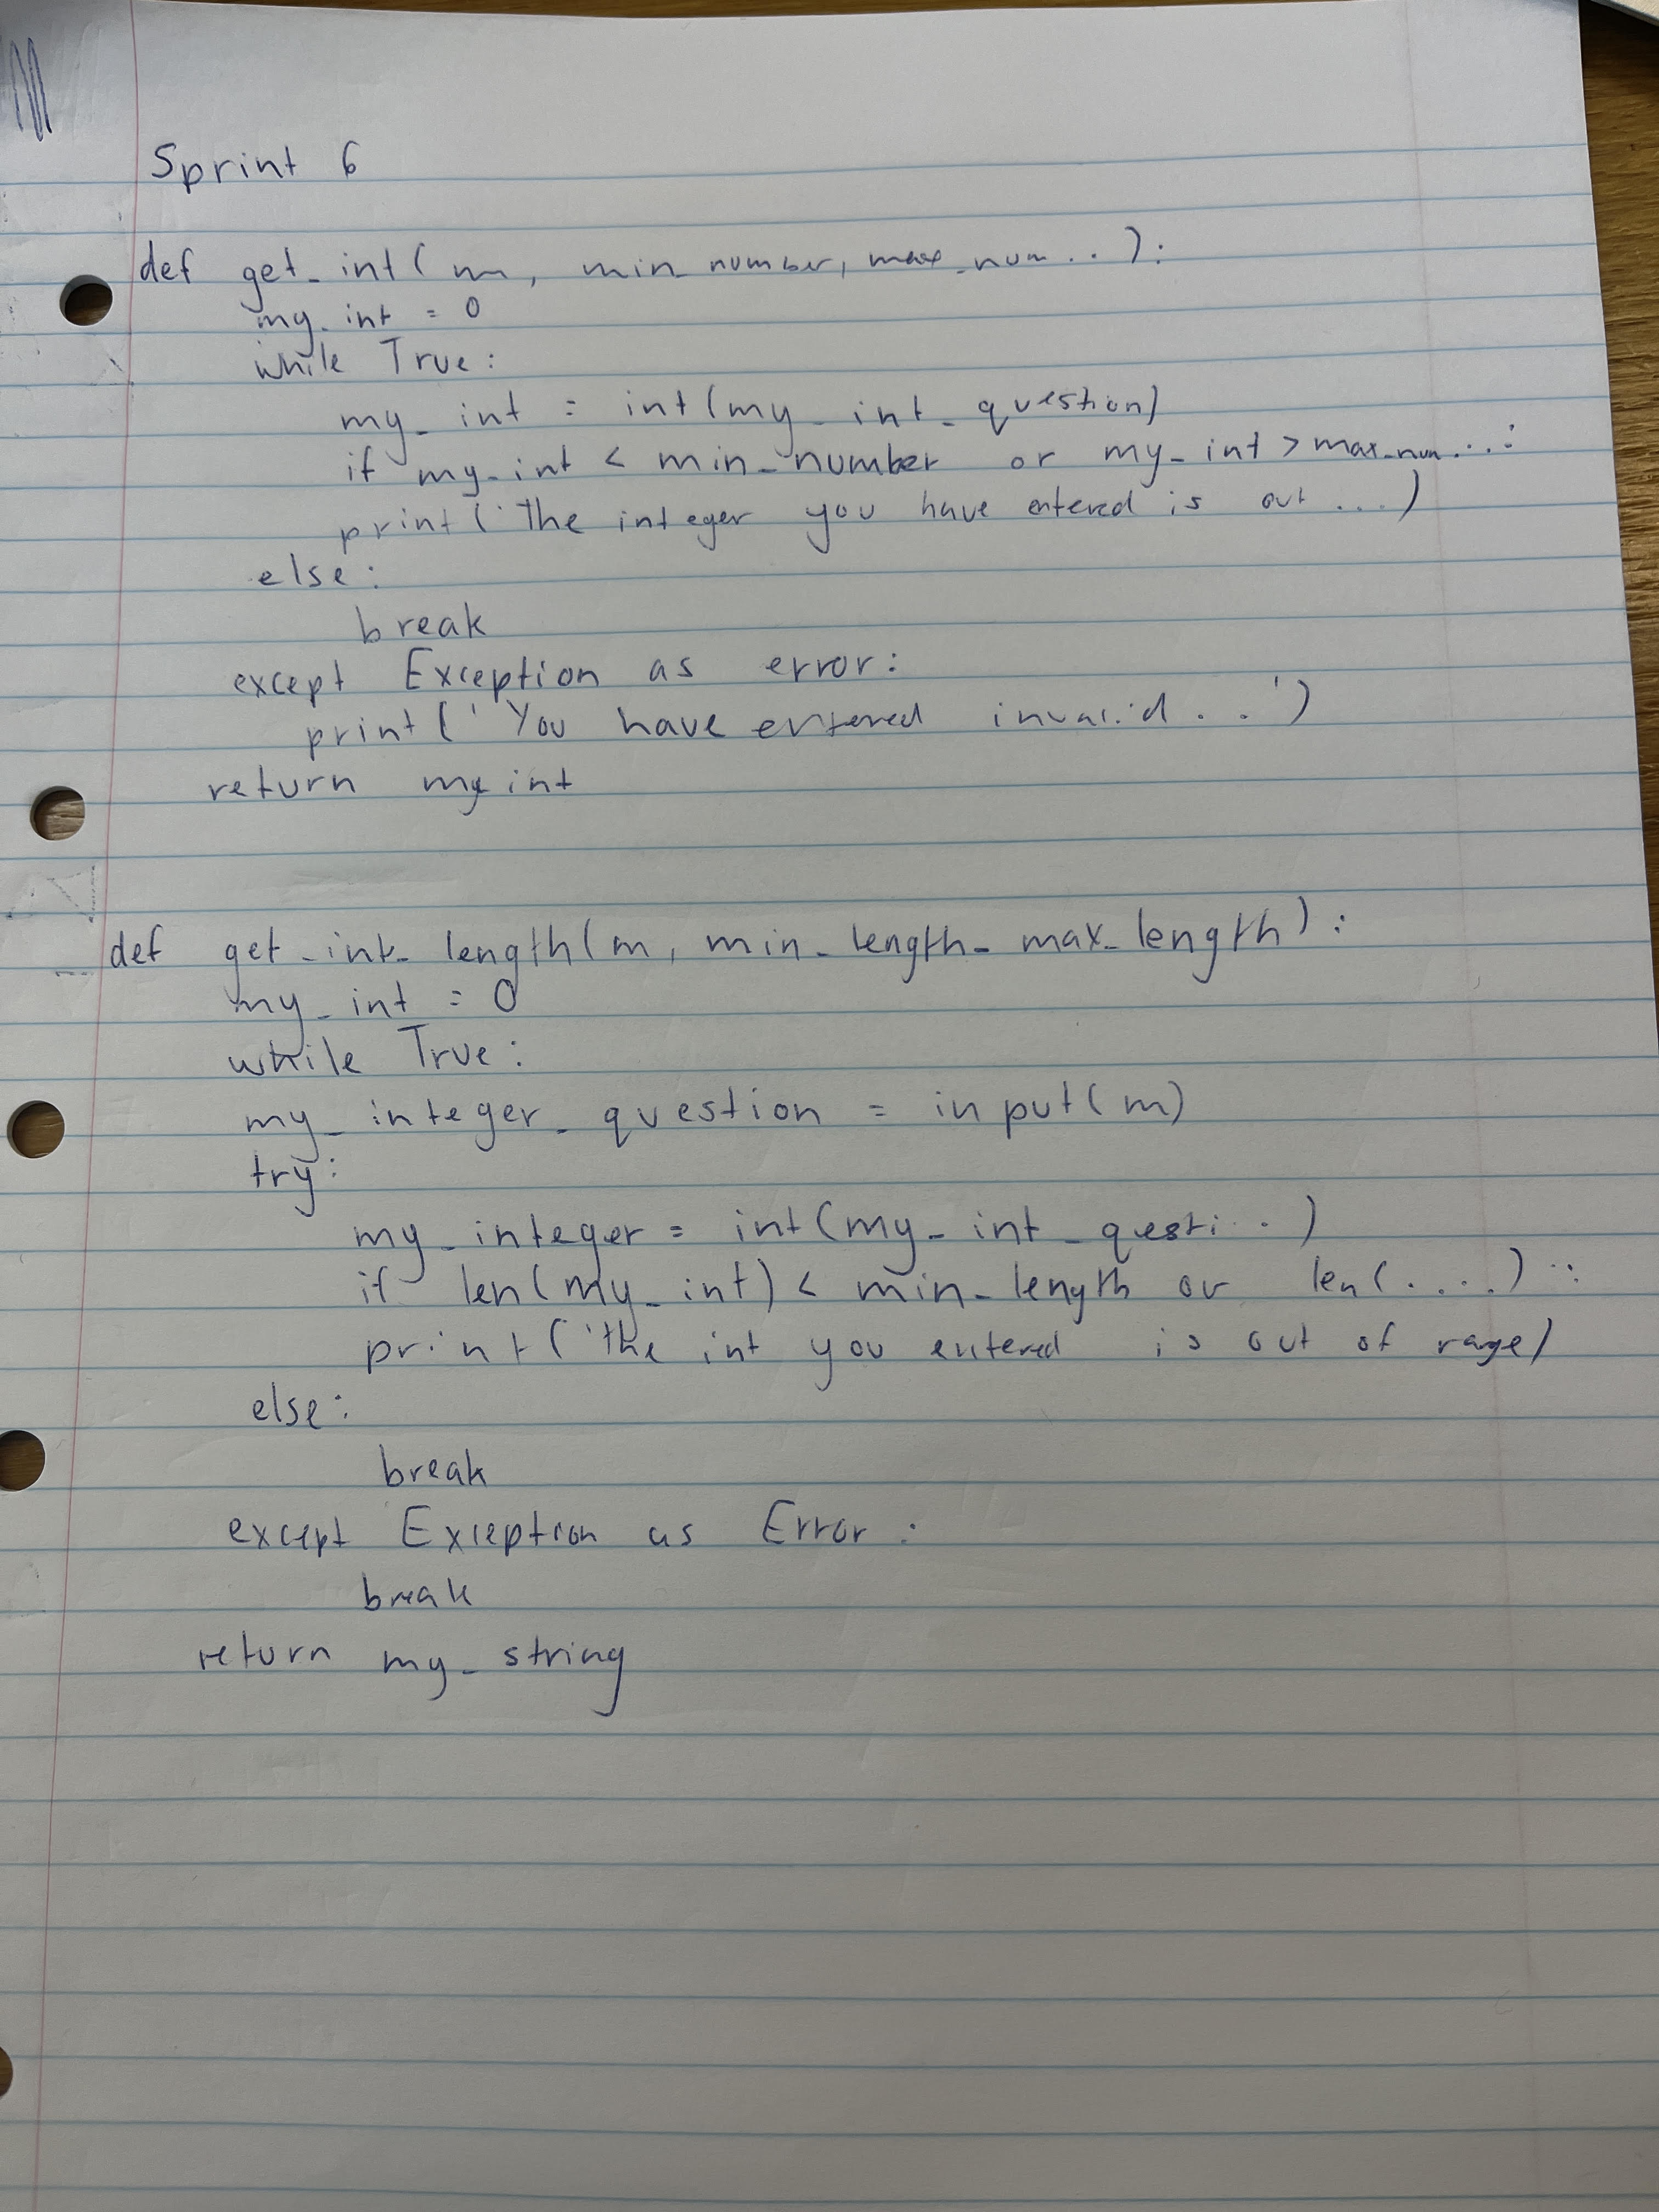 Sprint 6
def get_int(m, min_number, max_num..):
my_int = 0
while True:
my_int = int(my_int_question)
if my_int < min_number or my_int > max_num...:
print('The integer you have entered is out ...)
else:
break
except Exception as error:
print('You have entered invalid..')
return my int
def get_int_length(m, min_length_ max_length):
my_int = 0
while True:
my_integer_question = input(m)
try:
my_integer = int(my_int_questi...)
if len(my_int) < min_length or len(....):
print('the int you entered is out of range)
else:
break
except Exception as Error:
break
return my_string